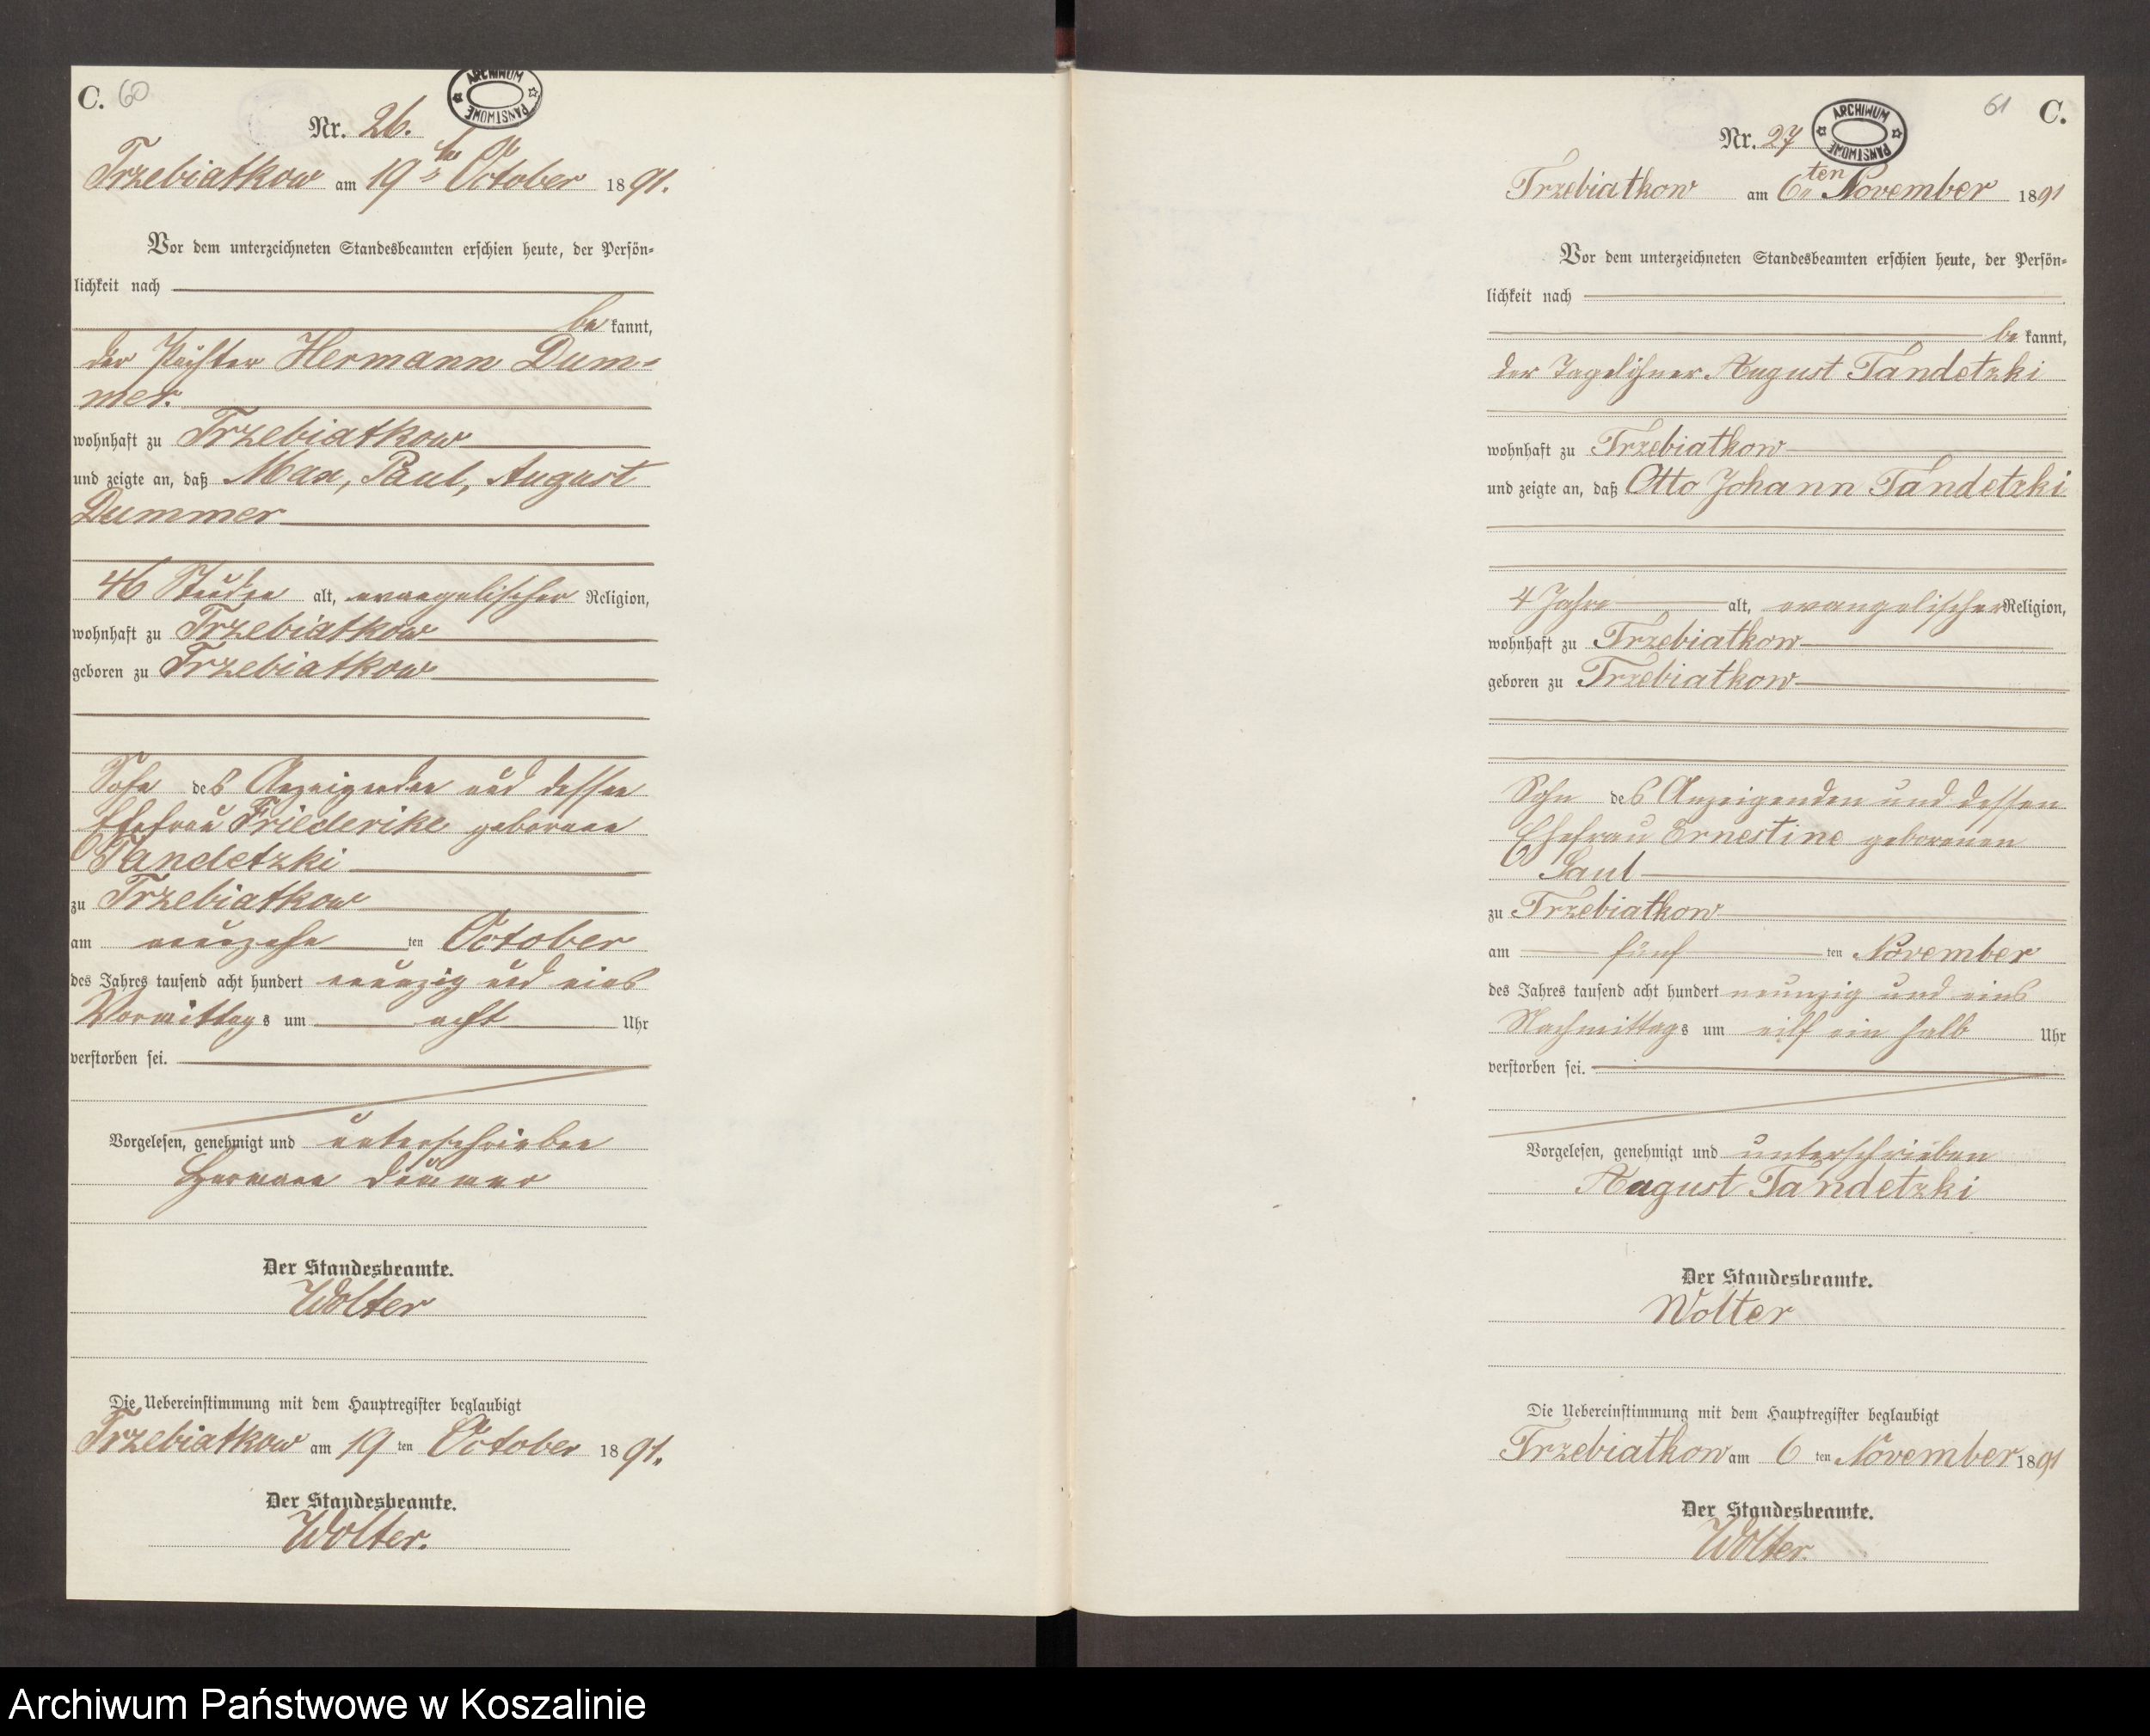 C. 60
ARCHIWUM PAŃSTWOWE
Nr. 26.
Trzebiatkow am 19ten October 1891.
Vor dem unterzeichneten Standesbeamten erschien heute, der Persön-
lichkeit nach
be kannt,
der Pächter Hermann Dum-
mer.
wohnhaft zu Trzebiatkow
und zeigte an, daß Max, Paul, August
Dummer
46 Stunden alt, evangelischer Religion,
wohnhaft zu Trzebiatkow
geboren zu Trzebiatkow
Sohn des Anzeigenden und dessen
Ehefrau Friederike geborenen
Tandetzki
zu Trzebiatkow
am neunzehn ten October
des Jahres tausend acht hundert neunzig und eins
Vormittags um acht Uhr
verstorben sei.
Vorgelesen, genehmigt und unterschrieben
Hermann Dummer
Der Standesbeamte.
Wolter
Die Uebereinstimmung mit dem Hauptregister beglaubigt
Trzebiatkow am 19 ten October 1891.
Der Standesbeamte.
Wolter.
61 C.
ARCHIWUM PAŃSTWOWE
Nr. 27
Trzebiatkow am 6ten November 1891
Vor dem unterzeichneten Standesbeamten erschien heute, der Persön-
lichkeit nach
be kannt,
der Tagelöhner August Tandetzki
wohnhaft zu Trzebiatkow
und zeigte an, daß Otto Johann Tandetzki
4 Jahre alt, evangelischer Religion,
wohnhaft zu Trzebiatkow
geboren zu Trzebiatkow
Sohn des Anzeigenden und dessen
Ehefrau Ernestine geborenen
Paul
zu Trzebiatkow
am fünf ten November
des Jahres tausend acht hundert neunzig und eins
Nachmittags um eilf ein halb Uhr
verstorben sei.
Vorgelesen, genehmigt und unterschrieben
August Tandetzki
Der Standesbeamte.
Wolter
Die Uebereinstimmung mit dem Hauptregister beglaubigt
Trzebiatkow am 6 ten November 1891
Der Standesbeamte.
Wolter.
Archiwum Państwowe w Koszalinie